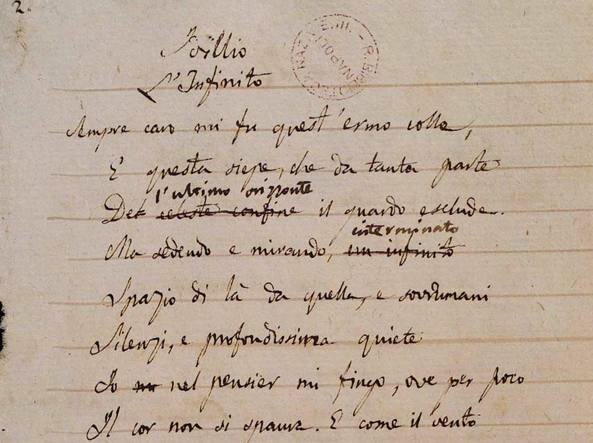 2.
Idillio
L'Infinito
Sempre caro mi fu quest'ermo colle,
E questa siepe, che da tanta parte
l'ultimo orizzonte
Del celeste confine il guardo esclude.
interminato
Ma sedendo e mirando, un infinito
Spazio di là da quella, e sovrumani
Silenzi, e profondissima quiete
Io nel pensier mi fingo, ove per poco
Il cor non si spaura. E come il vento